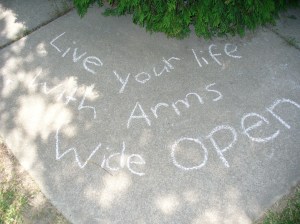 Live your life
with Arms
Wide Open